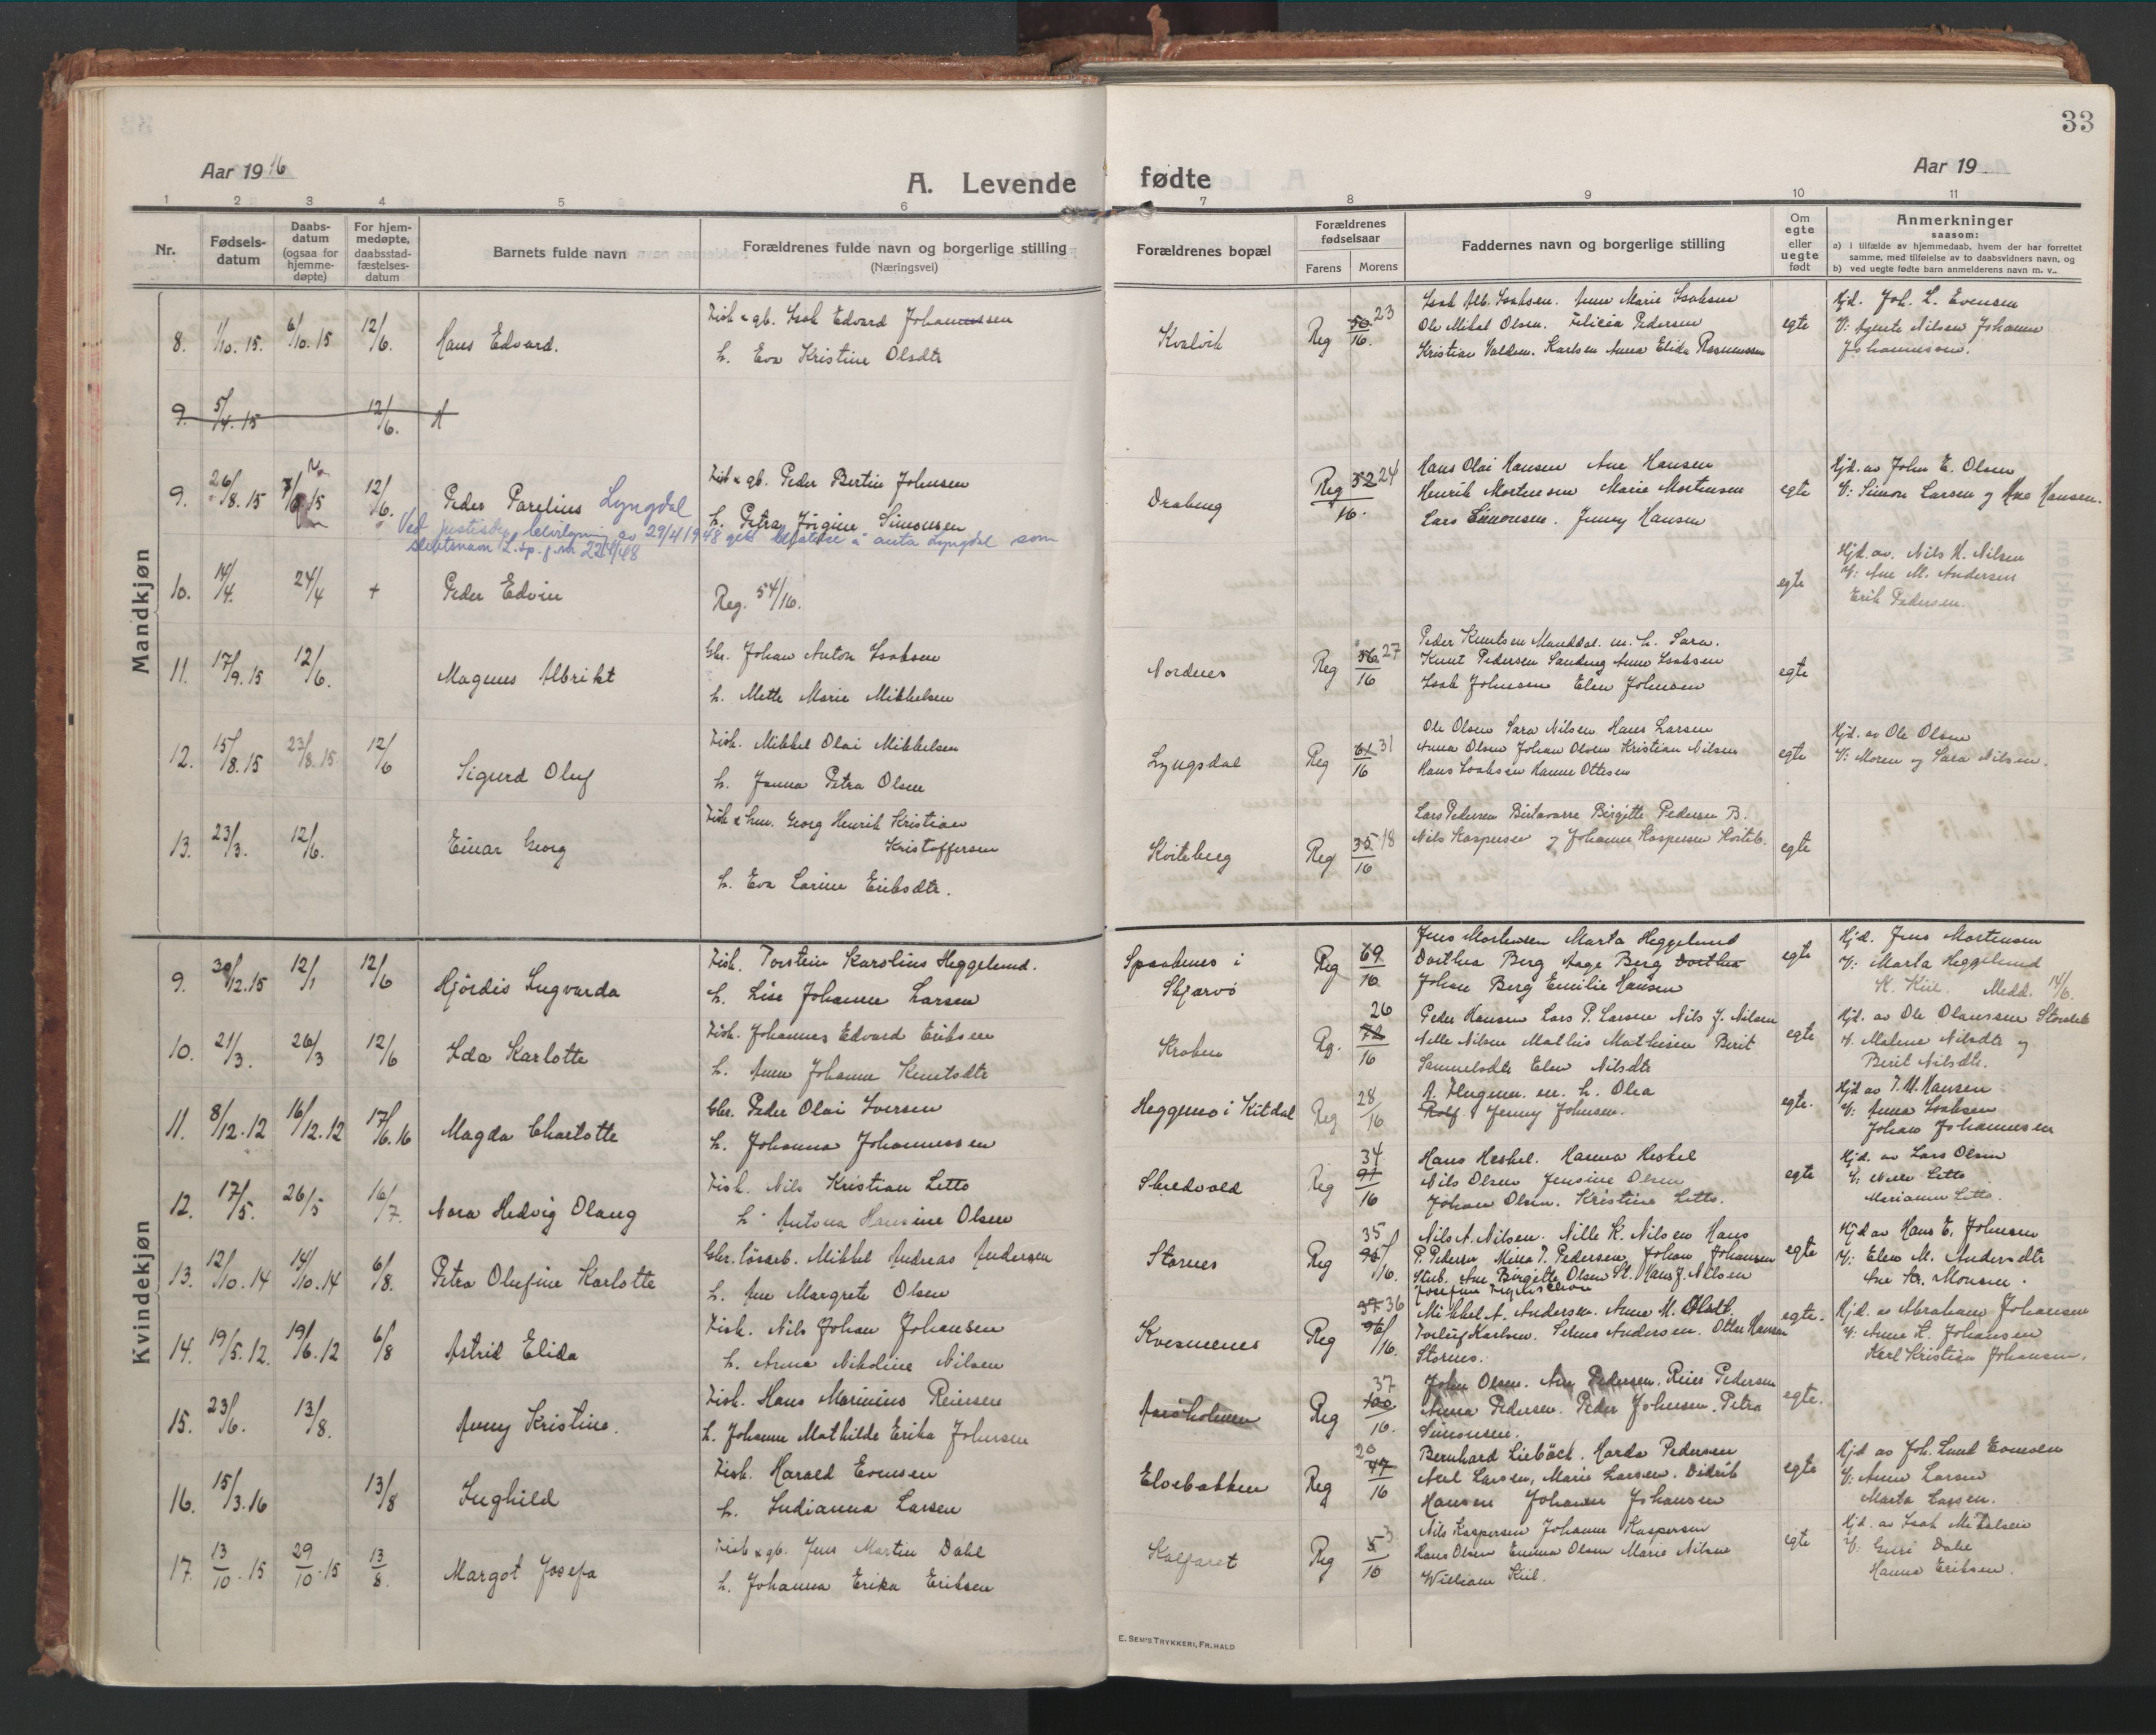 33
Aar 1916
A. Levende fødte
Aar 19
1 2 3 4 5 6 7 8 9 10 11
Nr.
Fødsels-
datum
Daabs-
datum
(ogsaa for
hjemme-
døpte)
For hjem-
medøpte,
daabsstad-
fæstelses-
datum
Barnets fulde navn
Forældrenes fulde navn og borgerlige stilling
(Næringsvei)
Forældrenes bopæl
Forældrenes
fødselsaar
Farens Morens
Faddernes navn og borgerlige stilling
Om
egte
eller
uegte
født
Anmerkninger
saasom:
a) i tilfælde av hjemmedaab, hvem der har forrettet
samme, med tilføielse av to daabsvidners navn, og
b) ved uegte fødte barn anmelderens navn m. v..
Mandkjøn
8. 1/10. 15. 6/10. 15 12/6. Hans Edvard.
Fisk & gb. Isak Edvard Johannessen
h. Eva Kristine Olsdtr
Kvalvik Reg 50 23/16.
Isak Alb. Isaksen. Anne Marie Isaksen
Ole Mikal Olsen. Felicia Pedersen
Kristian Karlsen Anna Elida Rasmussen
egte
Hjd. Joh. L. Evensen
V: Agnete Nilsen Johanne
Johannessen.
9. 5/4. 15 12/6. A
9. 26/8. 15 12/6. Peder Parelius Lyngdal
Ved justisdep. bevilgning av 29/4 1948 gitt tillatelse å anta Lyngdal som
slektsnavn
Fisk & gb. Peder Bertin Johnsen
h. Petra Jørgine Simonsen
Reg 52 24/16.
Hans Olai Hansen Ane Hansen
Henrik Mortensen Marie Mortensen
Lars Simonsen. Jenny Hansen
egte
Hjd. av John E. Olsen
V: Simon Larsen og Ane Hansen.
10. 14/4. 24/4 + Peder Edvin
Reg. 54/16.
egte
Hjd. av. Nils H. Nilsen
V: Ane M. Andersen
Erik Pedersen.
11. 17/9. 15 12/6. Magnus Albrikt
Gbr. Johan Anton Isaksen
h. Mette Marie Mikkelsen
Nordnes Reg 56 27/16
Peder Knutsen Manddal. m. h. Sara.
Knut Pedersen Anne Isaksen
Isak Johnsen Elen Johnsen
egte
12. 15/8. 15 23/8. 15 12/6 Sigurd Oluf
Fisk. Mikkel Olai Mikkelsen
h. Janna Petra Olsen
Lyngsdal Reg 61 31/16
Ole Olsen Sara Nilsen Hans Larsen
Anna Olsen Johan Olsen Kristian Nilsen
Hans Isaksen Hanne Ottesen
egte
Hjd. av Ole Olsen
V: Moren og Sara Nilsen.
13. 23/3. 12/6. Einar Georg
Fisk & hm. Georg Henrik Kristian
Kristoffersen
h. Eva Larine Eriksdtr.
Kviteberg Reg 35 18/16
Lars Pedersen Birtavarre Birgitte Pedersen B.
Nils Kaspersen og Johanne Kaspersen Kviteb.
egte
Kvindekjøn
9. 30/12. 15 12/1 12/6 Hjördis Ingvarda
Fisk. Torstein Karolius Heggelund.
h. Lise Johanne Larsen
Spaaknes i
Skjærvö
Reg 69/16
Jens Mortensen Marta Heggelund
Dorthea Berg Aage Berg Dorthea
Johan Berg Emilie Hansen
egte
Hjd. Jens Mortensen
V: Marta Heggelund
K. Kiil. Medd. 14/6.
10. 21/3. 26/3 12/6 Ida Karlotte
Fisk. Johannes Edvard Eriksen
h. Anne Johanne Knutsdtr
Kroken Rg. 26 72/16
Peder Hansen Lars P. Larsen Nils J. Nilsen
Nille Nilsen Mathis Mathisen Berit
Samuelsdtr Elen Nilsdtr
egte
Hjd. av Ole Olaussen
V. Malene Nilsdtr og
Berit Nilsdtr.
11. 8/12. 12 16/12. 12 17/6. 16 Magda Charlotte
Gbr. Peder Olai Iversen
h. Johanna Johannessen
Heggemo i Kitdal Reg 28/16
A. m. h. Olea
Rolf. Jenny Johnsen.
egte.
Hjd av
V: Anna Isaksen
Johan Johannesen
12. 17/5. 26/5 16/7. Nora Hedvig Olaug
Fisk. Nils Kristian Letto
h. Antona Hansine Olsen
Skredvold Reg 34 91/16
Hans Heskel. Hanna Heskel
Nils Olsen Jensine Olsen
Johan Olsen. Kristine Letto.
egte
Hjd. av Lars Olsen
V: Letto
Marianne Letto.
13. 12/10. 14 14/10. 14 6/8. Petra Olufine Karlotte
Gbr. lösarb. Mikkel Andreas Andersen
h. Ane Margrete Olsen
Stornes Reg 35 95/16.
Nils N. Nilsen. Nille K. Nilsen Hans
P. Pedersen Mina J. Pedersen Johan Johansen
Stub. Ane Birgitte Olsen St. Hans J. Nilsen
Josefine
egte
Hjd av Hans E. Johnsen
V: Elen M. Andersdtr
Ane Kr. Monsen.
14. 19/5. 12. 19/6. 12 6/8 Astrid Elida
Fisk. Nils Johan Johansen
h. Anna Nikoline Nilsen
Kvesmenes Reg 37 36 96/16.
Mikkel A. Andersen. Anne M. Olsdt.
Torleif Karlsen. Selma Andersen. Ottar Hansen
Stornes.
egte.
Hjd. av Abraham Johansen
V: Anne K. Johansen
Karl Kristian Johansen.
15. 23/6. 13/8. Anny Kristine.
Fisk. Hans Marinius Reiersen
h. Johanne Mathilde Erika Johnsen
Aaröholmen Reg 37 100/16.
John Olsen. Ane Pedersen. Reier Pedersen
Anna Pedersen. Peder Johnsen. Petra
Simonsen.
egte.
16. 15/3. 16 13/8 Inghild
Fisk. Harald Evensen
h. Indianna Larsen
Elvebakken Reg 20 47/16
Bernhard Liebäck. Harda Pedersen
Larsen, Marie Larsen. Didrik
Hansen Johanne Johansen
egte
Hjd av Joh. Lund Evensen
V: Anne Larsen
Marta Larsen.
17. 13/10. 15 29/10. 15 13/8. Margot Josefa
Fisk & gb. Jens Martin Dahl
h. Johanna Erika Eriksen
Kalfaret Reg 5 3/16
Nils Kaspersen Johanne Kaspersen
Hans Olsen Emma Olsen Marie Nilsen
William Kiil.
egte
Hjd. av Isak Mikalsen
V: Guri Dahl
Hanna Eriksen.
E. SEM'S TRYKKERI, FR.HALD